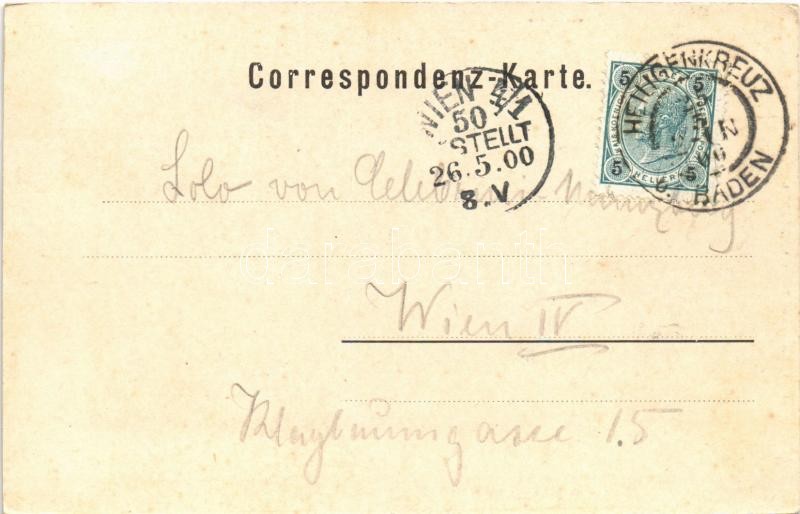 Correspondenz-Karte.
HEILIGENKREUZ
b. BADEN
5 5
5 5
HELLER
WIEN 4/1
50
BESTELLT
26.5.00
8.V
Lolo von
Wien IV
15
darabanth